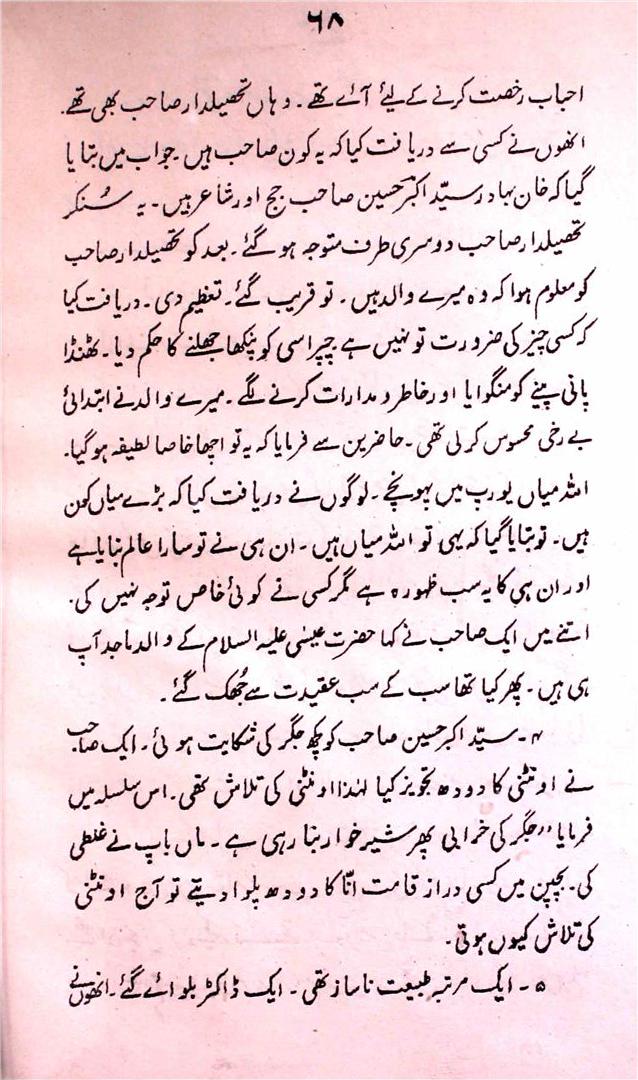 ۶۸
احباب رخصت کرنے کے لیئے آئے تھے۔ وہاں تحصیلدار صاحب بھی تھے۔
انھوں نے کسی سے دریافت کیا کہ یہ کون صاحب ہیں۔ جواب میں بتایا
گیا کہ خان بہادر سیّد اکبرؔ حسین صاحب جج اور شاعر ہیں۔ یہ سُنکر
تحصیلدار صاحب دوسری طرف متوجہ ہو گئے۔ بعد کو تحصیلدار صاحب
کو معلوم ہوا کہ وہ میرے والد ہیں۔ تو قریب گئے۔ تعظیم دی۔ دریافت کیا
کہ کسی چیز کی ضرورت تو نہیں ہے۔ چپراسی کو پنکھا جھلنے کا حکم دیا۔ ٹھنڈا
پانی پینے کو منگوایا اور خاطر و مدارات کرنے لگے۔ میرے والد نے ابتدائی
بے رخی محسوس کر لی تھی۔ حاضرین سے فرمایا کہ یہ تو اچھا خاصا لطیفہ ہو گیا۔
اللہ میاں یورپ میں پہونچے۔ لوگوں نے دریافت کیا کہ بڑے میاں کون
ہیں۔ تو بتایا گیا کہ یہی تو اللہ میاں ہیں۔ ان ہی نے تو سارا عالم بنایا ہے
اور ان ہی کا یہ سب ظہورہ ہے مگر کسی نے کوئی خاص توجہ نہیں کی۔
اتنے میں ایک صاحب نے کہا حضرت عیسٰی علیہ السلام کے والد ماجد آپ
ہی ہیں۔ پھر کیا تھا سب کے سب عقیدت سے جُھک گئے۔
۴۔ سیّد اکبر حسین صاحب کو کچھ جگر کی شکایت ہوئی۔ ایک صاحب
نے اونٹنی کا دودھ تجویز کیا لہٰذا اونٹنی کی تلاش تھی۔ اس سلسلہ میں
فرمایا "جگر کی خرابی پھر شیر خوار بنا رہی ہے۔ ماں باپ نے غلطی
کی۔ بچپن میں کسی دراز قامت انّا کا دودھ پلوا دیتے تو آج اونٹنی
کی تلاش کیوں ہوتی۔
۵۔ ایک مرتبہ طبیعت ناساز تھی۔ ایک ڈاکٹر بلوائے گئے۔ انھوں نے